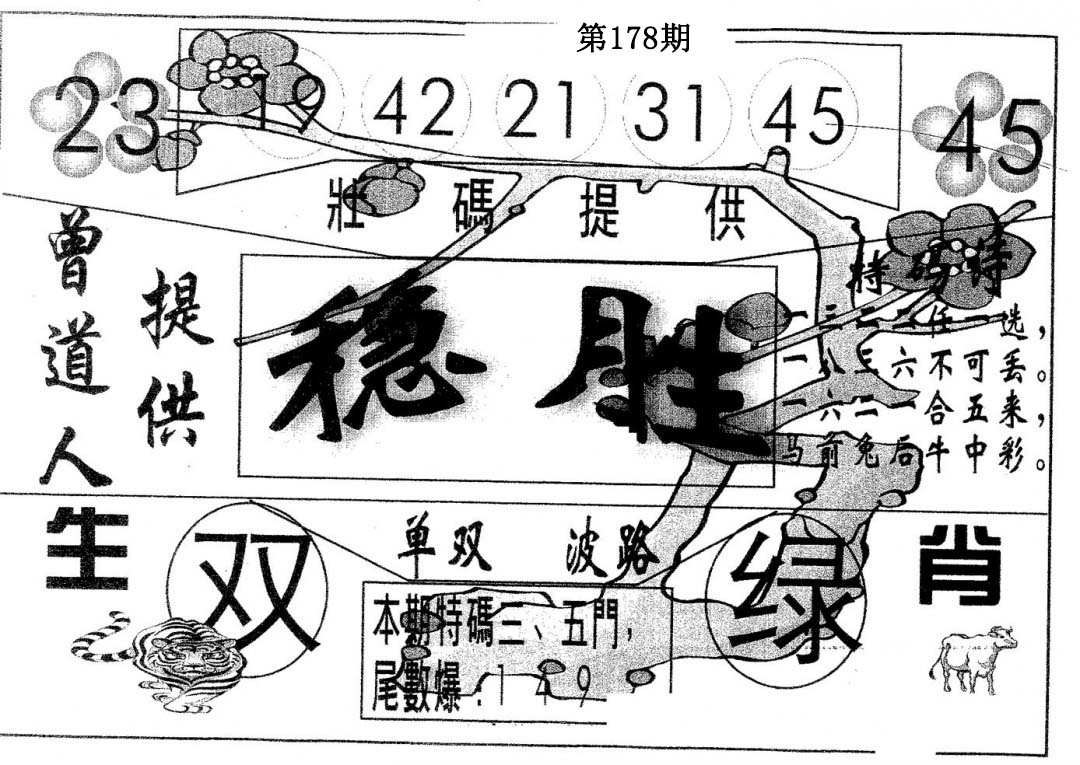 第178期
23 19 42 21 31 45 45
壯碼提供
曾道人
提供
稳胜
特码诗
一三二二任一选，
一八三六不可丢。
一六二一合五来，
马前兔后牛中彩。
生肖
双
单双 波路
绿
本期特碼三、五門，
尾數爆：1 4 9